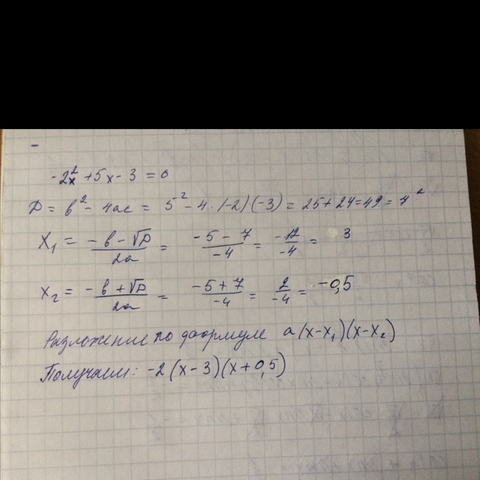 -2x²+5x-3=0
D = b²-4ac = 5²-4·(-2)(-3) = 25+24=49=7²
x₁ = (-b-√D)/2a = (-5-7)/-4 = -12/-4 = 3
x₂ = (-b+√D)/2a = (-5+7)/-4 = 2/-4 = -0,5
Разложение по формуле a(x-x₁)(x-x₂)
Получаем: -2(x-3)(x+0,5)